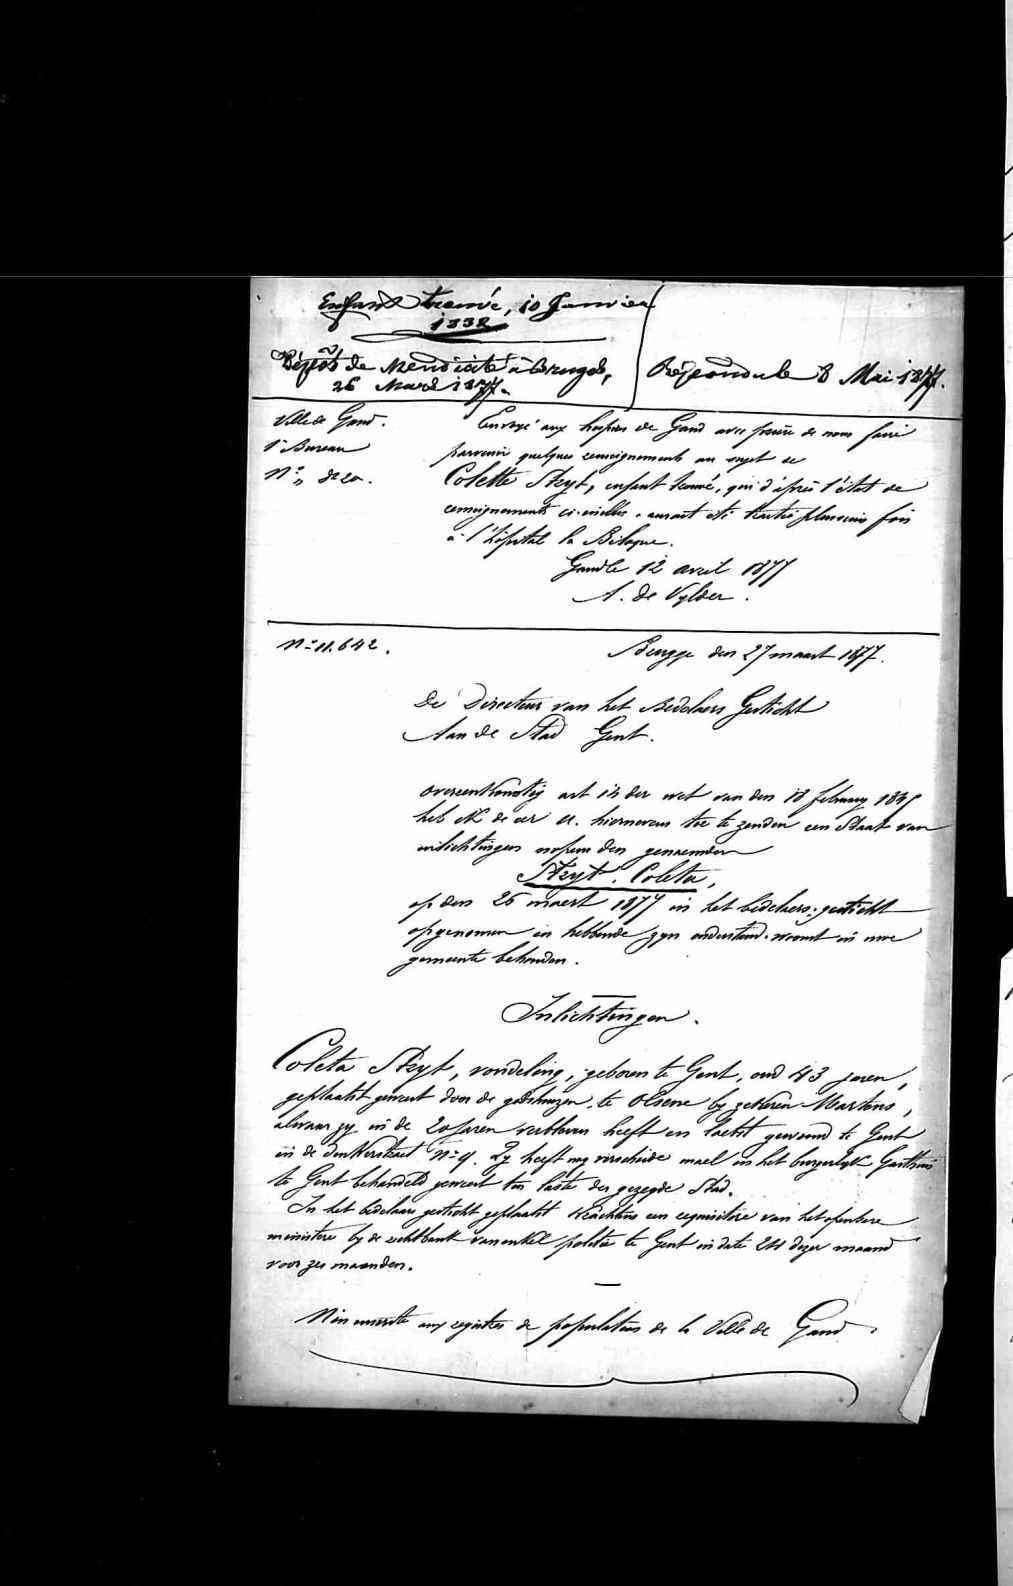 Enfant trouvé, 10 Janvier
1832
Dépôt de Mendicité à Bruges,
26 Mars 1877.
Répondu le 8 Mai 1877.
Ville de Gand.
1r Bureau
N°
Envoyé aux hospices de Gand avec prière de nous faire
parvenir quelques renseignements au sujet de
Colette Stryt, enfant trouvé, qui d'après l'état de
renseignements ci-inclus, aurait été traitée plusieurs fois
à l'hôpital la Biloque.
Gand le 12 avril 1877
A. de Vylder.
N° 11.642.
Brugge den 27 maart 1877.
De Directeur van het Bedelaers Gesticht
Aan de Stad Gent.
overeenkomstig art 14 der wet van den 18 february 1845
heb ik de eer U. hiernevens toe te zenden een Staat van
inlichtingen nopens den genaemden
Stryt. Coleta,
op den 26 maert 1877 in het bedelaers-gesticht
opgenomen en hebbende zyn onderstand-woonst in uwe
gemeente behouden.
Inlichtingen.
Coleta Stryt, vondeling, geboren te Gent, oud 43 jaren,
geplaatst geweest door de godshuizen te Olsene by gekeren Martens,
alwaar zy in de 20 jaren verbleven heeft en laetst gewoond te Gent
in de donkerstraet N° 9. Zy heeft nog verscheide mael in het burgerlyk Gasthuis
te Gent behandeld geweest ten laste der gezegde Stad.
In het bedelaers gesticht geplaatst krachtens een requisitoire van het openbare
ministerie by de rechtbank van enkele politie te Gent in date 24 dezer maand
voor zes maanden.
Non inscrite aux registres de population de la Ville de Gand.